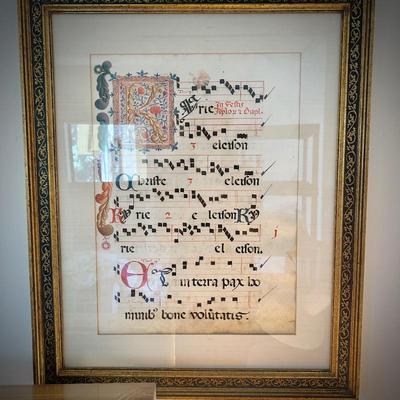 Kyrie In Festis
Aplor 2 Dupl.
3 eleison
Christe 3 eleison
Kyrie 2 eleison Ky j
rie eleison.
Et in terra pax ho
minib⁹ bone volūtatis.